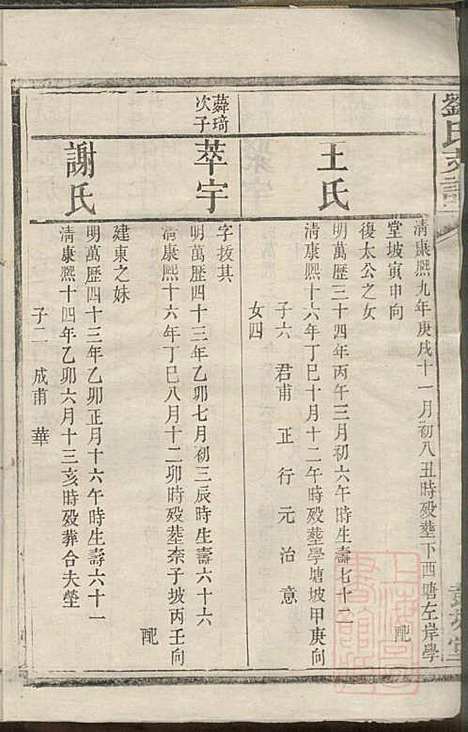 劉氏支譜
清康熙九年庚戌十一月初八丑時殁塟下西塘左岸學
堂坡寅申向
配
王氏
復太公之女
明萬歷三十四年丙午三月初六午時生壽七十二
清康熙十六年丁巳十月十二午時殁塟學塘坡甲庚向
子六 君甫 正行 元治 意
女四
蕣琦次子
萃宇
字拔其
明萬歷四十三年乙卯七月初三辰時生壽六十六
清康熙十六年丁巳八月十二卯時殁塟柰子坡丙壬向
配
謝氏
建東之妹
明萬歷四十三年乙卯正月十六午時生壽六十一
清康熙十四年乙卯六月十三亥時殁葬合夫塋
子二 成甫 華